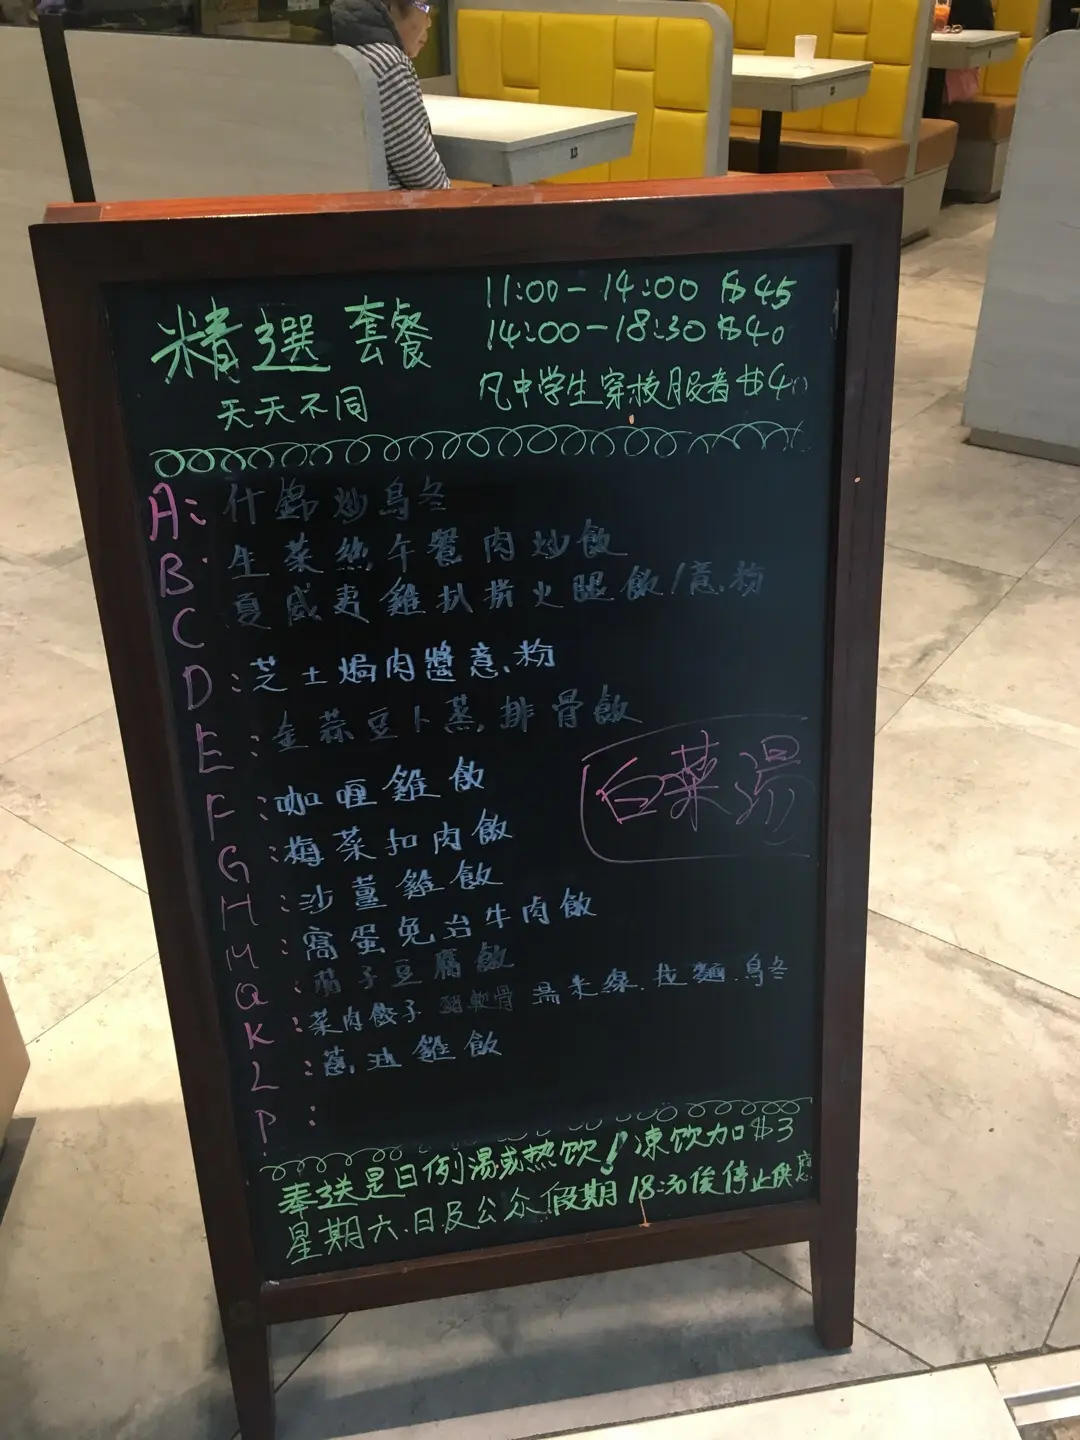 精選套餐
天天不同
11:00-14:00 $45
14:00-18:30 $40
凡中学生穿校服者 $40
A: 什錦炒烏冬
B: 生菜絲午餐肉炒飯
C 夏威夷雞扒拼火腿飯/意粉
D: 芝士焗肉醬意粉
E: 金蒜豆卜蒸排骨飯
F: 咖喱雞飯
G: 梅菜扣肉飯
H: 沙薑雞飯
M: 窩蛋免治牛肉飯
Q: 茄子豆腐飯
K: 菜肉餃子 豬軟骨 湯米線.拉麵.烏冬
L: 蔥油雞飯
P:
白菜湯
奉送是日例湯或热饮!凍饮加$3
星期六.日及公众假期18:30後停止供應